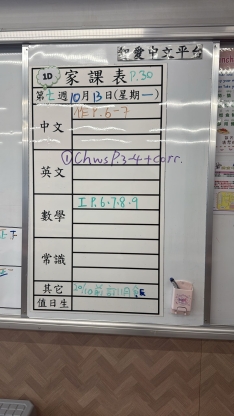 智愛中文平台
1D 家課表 P.30
第七週10月13日(星期一)
中文 作 P.6-7
英文 ①Chws P.3-4+corr.
數學 工 P.6.7.8.9
常識
其它 20/10前訂11月
值日生